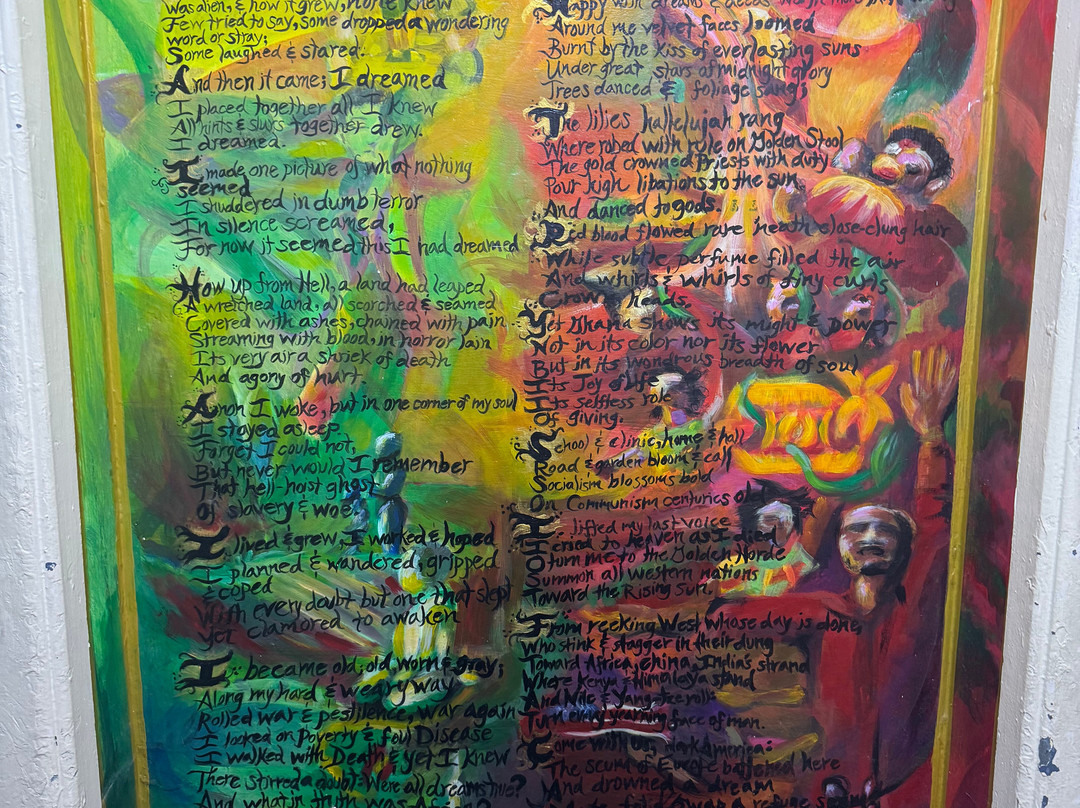 was alien, & how it grew, none knew
Few tried to say, some dropped a wondering
word or stray;
Some laughed & stared.
And then it came; I dreamed
I placed together all I knew
All hints & slurs together drew.
I dreamed.
I made one picture of what nothing
seemed
I shuddered in dumb terror
In silence screamed,
For now it seemed this I had dreamed
How up from Hell, a land had leaped
A wretched land, all scorched & seamed
Covered with ashes, chained with pain
Streaming with blood, in horror lain
Its very air a shriek of death
And agony of hurt.
Anon I woke, but in one corner of my soul
I stayed asleep
Forget I could not,
But never would I remember
That hell-hoist ghost
Of slavery & woe
I lived & grew, I worked & hoped
I planned & wandered, gripped
& coped
With every doubt but one that slept
Yet clamored to awaken
I became old; old, worn & gray;
Along my hard & weary way
Rolled war & pestilence, war again
I looked on Poverty & foul Disease
I walked with Death & yet I knew
There stirred a doubt: Were all dreams true?
And what in truth was Africa?
Happy with dreams & deeds
Around me velvet faces loomed
Burnt by the kiss of everlasting suns
Under great stars of midnight glory
Trees danced & foliage sang;
The lilies hallelujah rang
Where robed with rule on Golden Stool
The gold crowned Priests with duty
Pour high libations to the sun
And danced to gods.
Red blood flowed rare 'neath close-clung hair
While subtle perfume filled the air
And whirls & whirls of tiny curls
Crowned heads.
Yet Ghana shows its might & power
Not in its color nor its flower
But in its wondrous breadth of soul
Its Joy of life
Its selfless role
Of giving.
School & clinic, home & hall
Road & garden bloom & call
Socialism blossoms bold
On Communism centuries old
I lifted my last voice
I cried to heaven as I died
O turn me to the Golden Horde
Summon all western nations
Toward the Rising Sun.
From reeking West whose day is done,
Who stink & stagger in their dung
Toward Africa, China, India's strand
Where Kenya & Himalaya stand
And Nile & Yang-tze roll:
Turn every yearning face of man.
Come with us, dark America:
The scum of Europe battened here
And drowned a dream
swamp a refuge